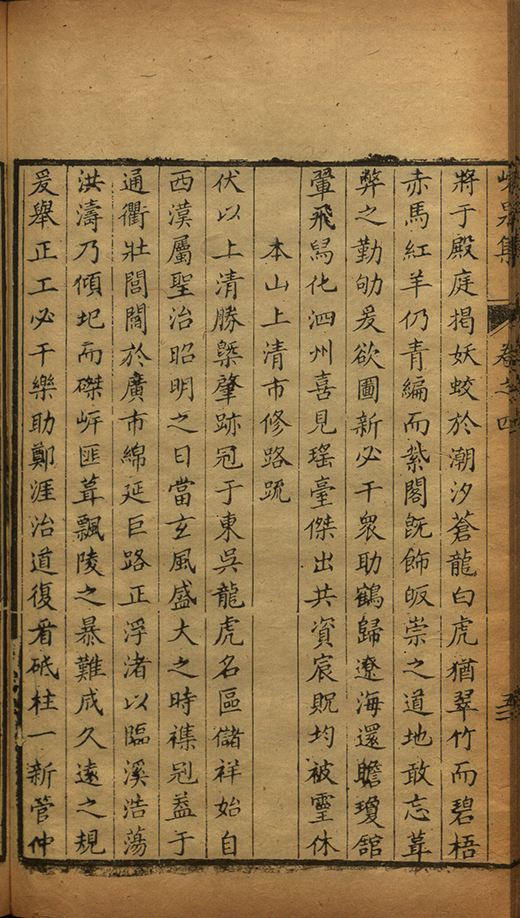 卷之四
將于殿庭揭妖蛟於潮汐蒼龍白虎猶翠竹而碧梧
赤馬紅羊仍青編而紫閣旣飾皈崇之道地敢忘葺
弊之勤劬爰欲圖新必干衆助鶴歸遼海還瞻瓊舘
翬飛舄化泗州喜見瑤臺傑出共資宸貺均被靈休
本山上清市修路䟽
伏以上清勝槩肇跡冠于東吳龍虎名區儲祥始自
西漠屬聖治昭明之日當玄風盛大之時襟冠益于
通衢壯閭閻於廣市綿延巨路正浮渚以臨溪浩蕩
洪濤乃傾圯而磔岍匪葺飄陵之暴難成久遠之規
爰舉正工必干樂助鄭涯治道復看砥柱一新管仲